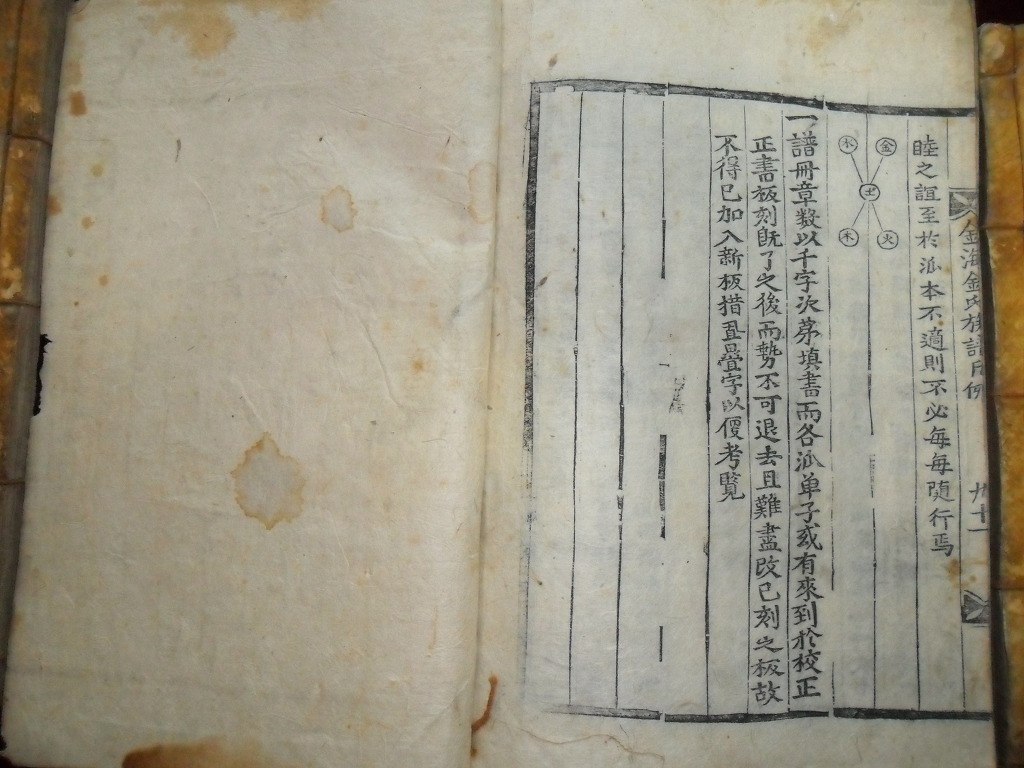 金海金氏族譜凡例
十一
睦之誼至於派本不適則不必每每隨行焉
金 水
土
火 木
一譜冊章数以千字次苐填書而各派单子或有來到於校正
正書板刻旣了之後而勢不可退去且難盡改已刻之板故
不得已加入新板措置疊字以便考覽